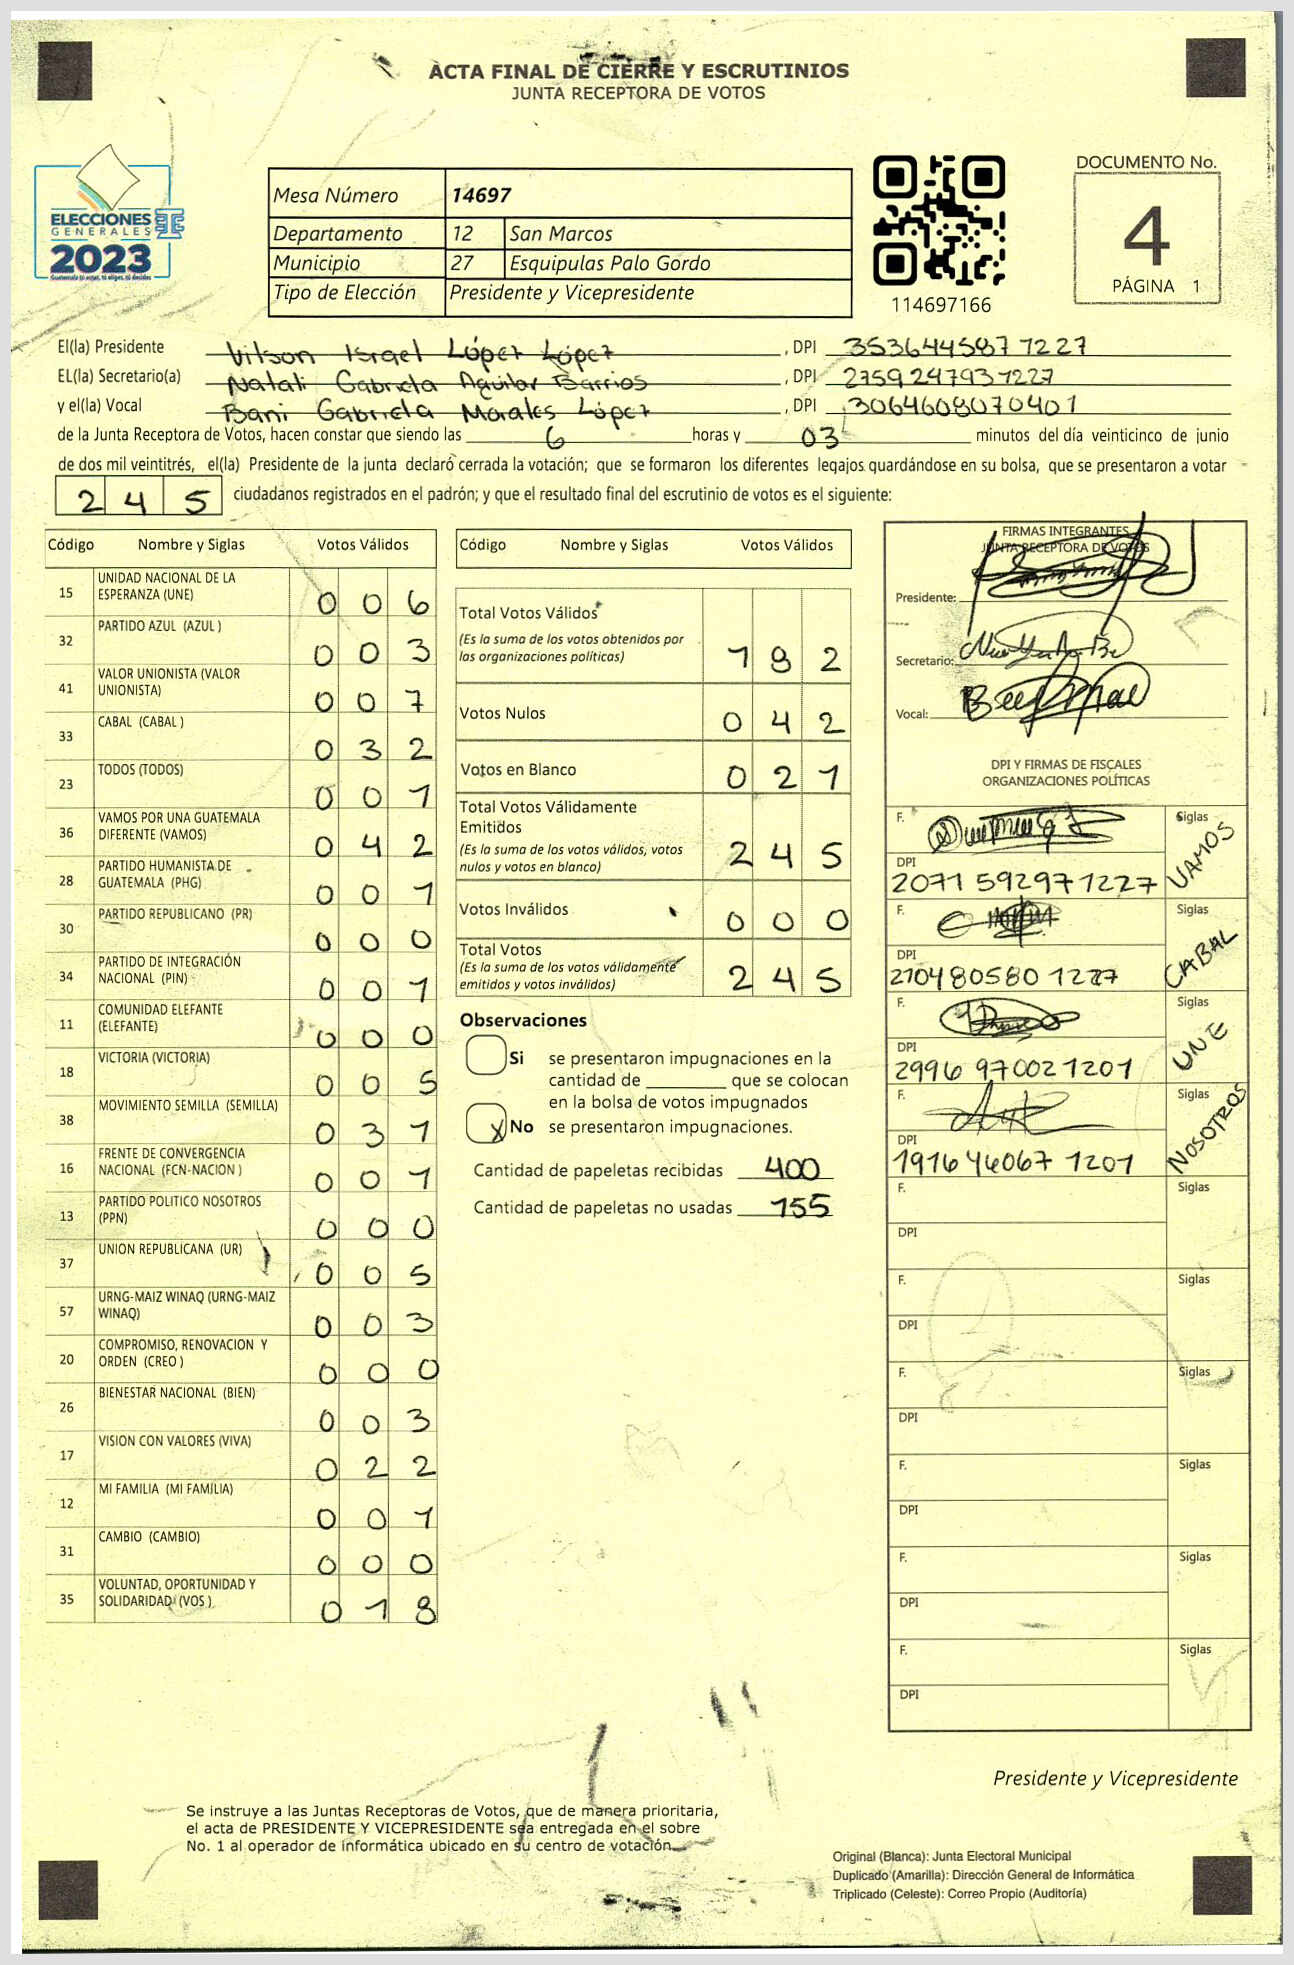 ACTA FINAL DE CIERRE Y ESCRUTINIOS
JUNTA RECEPTORA DE VOTOS
ELECCIONES
GENERALES
2023
Guatemala tú votas, tú eliges, tú decides
Mesa Número 14697
Departamento 12 San Marcos
Municipio 27 Esquipulas Palo Gordo
Tipo de Elección Presidente y Vicepresidente
114697166
DOCUMENTO No.
4
PÁGINA 1
El(la) Presidente Vilson Israel López López, DPI 3536445871227
EL(la) Secretario(a) Natali Gabriela Aguilar Barrios, DPI 2759247931227
y el(la) Vocal Bani Gabriela Morales López, DPI 3064608070401
de la Junta Receptora de Votos, hacen constar que siendo las 6 horas y 03 minutos del día veinticinco de junio
de dos mil veintitrés, el(la) Presidente de la junta declaró cerrada la votación; que se formaron los diferentes legajos guardándose en su bolsa, que se presentaron a votar
245 ciudadanos registrados en el padrón; y que el resultado final del escrutinio de votos es el siguiente:
Código Nombre y Siglas Votos Válidos
15 UNIDAD NACIONAL DE LA ESPERANZA (UNE) 006
32 PARTIDO AZUL (AZUL ) 003
41 VALOR UNIONISTA (VALOR UNIONISTA) 007
33 CABAL (CABAL ) 032
23 TODOS (TODOS) 001
36 VAMOS POR UNA GUATEMALA DIFERENTE (VAMOS) 042
28 PARTIDO HUMANISTA DE GUATEMALA (PHG) 001
30 PARTIDO REPUBLICANO (PR) 000
34 PARTIDO DE INTEGRACIÓN NACIONAL (PIN) 001
11 COMUNIDAD ELEFANTE (ELEFANTE) 000
18 VICTORIA (VICTORIA) 005
38 MOVIMIENTO SEMILLA (SEMILLA) 031
16 FRENTE DE CONVERGENCIA NACIONAL (FCN-NACION ) 001
13 PARTIDO POLITICO NOSOTROS (PPN) 000
37 UNION REPUBLICANA (UR) 005
57 URNG-MAIZ WINAQ (URNG-MAIZ WINAQ) 003
20 COMPROMISO, RENOVACION Y ORDEN (CREO ) 000
26 BIENESTAR NACIONAL (BIEN) 003
17 VISION CON VALORES (VIVA) 022
12 MI FAMILIA (MI FAMILIA) 001
31 CAMBIO (CAMBIO) 000
35 VOLUNTAD, OPORTUNIDAD Y SOLIDARIDAD (VOS ) 018
Código Nombre y Siglas Votos Válidos
Total Votos Válidos
(Es la suma de los votos obtenidos por
las organizaciones políticas) 182
Votos Nulos 042
Votos en Blanco 021
Total Votos Válidamente
Emitidos
(Es la suma de los votos válidos, votos
nulos y votos en blanco) 245
Votos Inválidos 000
Total Votos
(Es la suma de los votos válidamente
emitidos y votos inválidos) 245
Observaciones
Si se presentaron impugnaciones en la
cantidad de ________ que se colocan
en la bolsa de votos impugnados
X No se presentaron impugnaciones.
Cantidad de papeletas recibidas 400
Cantidad de papeletas no usadas 155
FIRMAS INTEGRANTES
JUNTA RECEPTORA DE VOTOS
Presidente:
Secretario:
Vocal:
DPI Y FIRMAS DE FISCALES
ORGANIZACIONES POLÍTICAS
F. Siglas VAMOS
DPI 2071592971227
F. Siglas CABAL
DPI 2104805801227
F. Siglas UNE
DPI 2996970021201
F. Siglas NOSOTROS
DPI 1916460671201
F. Siglas
DPI
F. Siglas
DPI
F. Siglas
DPI
F. Siglas
DPI
F. Siglas
DPI
F. Siglas
DPI
Presidente y Vicepresidente
Se instruye a las Juntas Receptoras de Votos, que de manera prioritaria,
el acta de PRESIDENTE Y VICEPRESIDENTE sea entregada en el sobre
No. 1 al operador de informática ubicado en su centro de votación.
Original (Blanca): Junta Electoral Municipal
Duplicado (Amarilla): Dirección General de Informática
Triplicado (Celeste): Correo Propio (Auditoría)